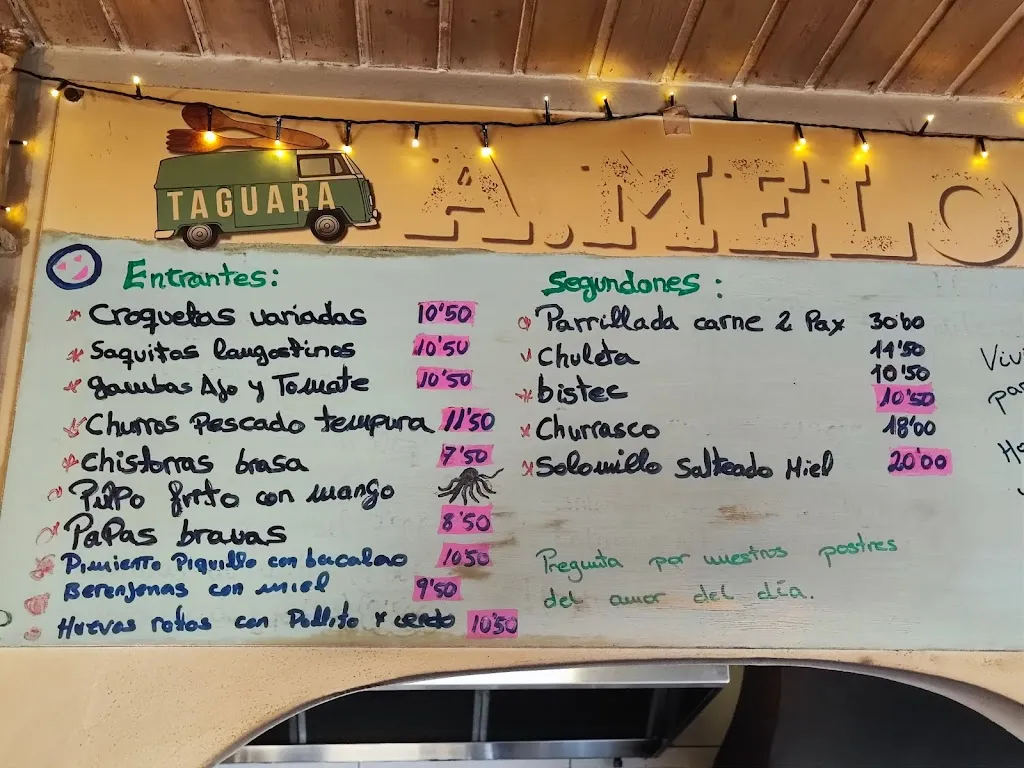 TAGUARA
A.MELO
Entrantes:
Croquetas variadas 10'50
Saquitos langostinos 10'50
gambas Ajo y Tomate 10'50
Churros Pescado tempura 11'50
Chistorras brasa 7'50
Pulpo frito con mango
Papas bravas 8'50
Pimiento Piquillo con bacalao 10'50
Berenjenas con miel 9'50
Huevos rotos con Pollito y cerdo 10'50
Segundones:
Parrillada carne 2 Pax 30'00
Chuleta 11'50
10'50
bistec 10'50
Churrasco 18'00
Solomillo Salteado Miel 20'00
Pregunta por nuestros postres
del amor del día.